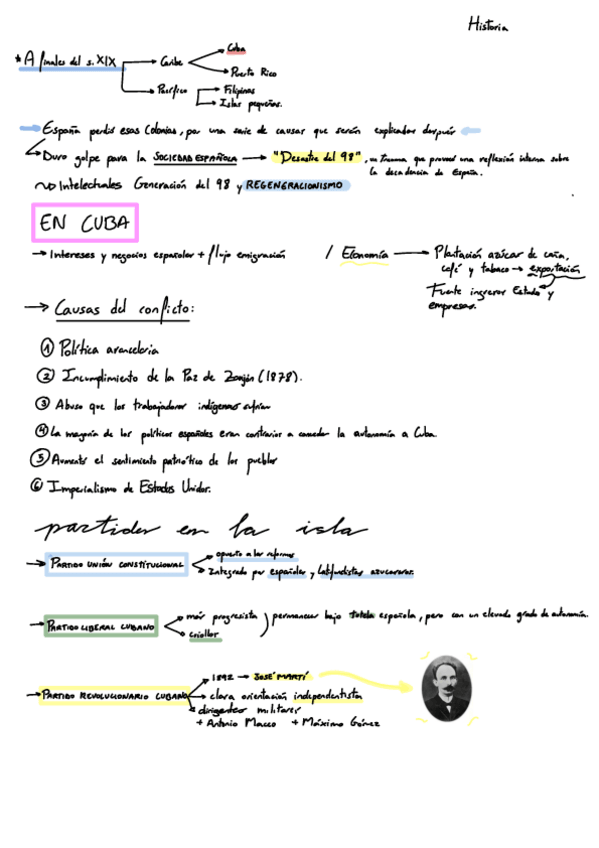 Historia
* A finales del s. XIX → Caribe → Cuba
→ Puerto Rico
→ Pacífico → Filipinas
→ Islas pequeñas.
→ España perdió esas Colonias, por una serie de causas que serán explicadas después ←
→ Duro golpe para la SOCIEDAD ESPAÑOLA → "Desastre del 98", un trauma que provocó una reflexión interna sobre
la decadencia de España.
Intelectuales Generación del 98 y REGENERACIONISMO
EN CUBA
→ Intereses y negocios españoles + flujo emigración / Economía → Plantación azúcar de caña,
café y tabaco → exportación
Fuente ingresos Estado y
empresas.
→ Causas del conflicto:
① Política arancelaria
② Incumplimiento de la Paz de Zanjón (1878).
③ Abuso que los trabajadores indígenas sufrían
④ La mayoría de los políticos españoles eran contrarios a conceder la autonomía a Cuba.
⑤ Aumentó el sentimiento patriótico de los pueblos
⑥ Imperialismo de Estados Unidos.
partidos en la isla
→ PARTIDO UNIÓN CONSTITUCIONAL → opuesto a las reformas
→ Integrado por españoles y latifundistas azucareros.
→ PARTIDO LIBERAL CUBANO → más progresista ) permanecer bajo tutela española, pero con un elevado grado de autonomía.
→ criollos
→ PARTIDO REVOLUCIONARIO CUBANO → 1892 → JOSÉ MARTÍ
→ clara orientación independentista
→ dirigentes militares
+ Antonio Maceo + Máximo Gómez